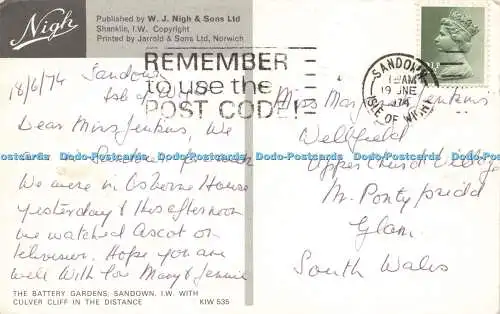 Nigh
Published by W. J. Nigh & Sons Ltd
Shanklin, I.W. Copyright
Printed by Jarrold & Sons Ltd, Norwich
REMEMBER
to use the
POST CODE!
SANDOWN
AM
19 JNE
1974
ISLE OF WIGHT
18/6/74 Sandown
Isle of Wight
Dear Miss Jenkins, We
We were in Osborne House
yesterday & this afternoon
we watched Ascot on
television. Hope you are
well With love Mary & Jennie
Miss Jenkins
Wellfield
Upper Church Village
Nr. Pontypridd
Glam.
South Wales
Dado-Postcards Dado-Postcards Dado-Postcards Dado-Postcards Dado-Postcards
THE BATTERY GARDENS, SANDOWN, I.W. WITH
CULVER CLIFF IN THE DISTANCE KIW 535